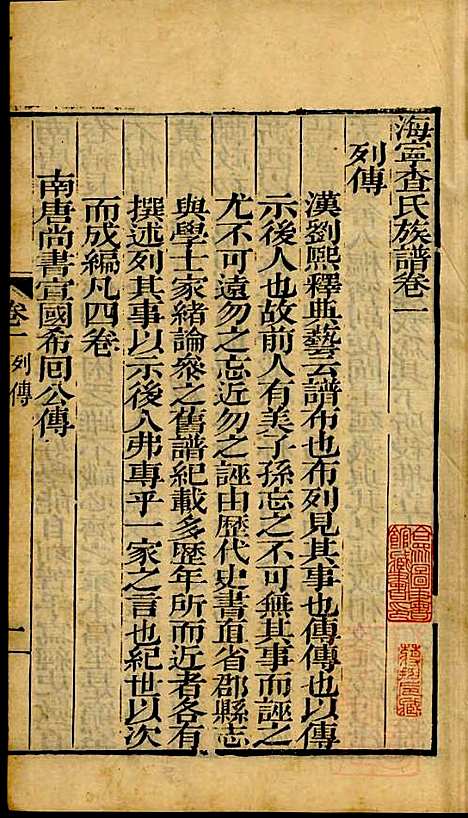 海寧查氏族譜卷一
列傳
漢劉熙釋典藝云譜布也布列見其事也傳傳也以傳
示後人也故前人有美子孫忘之不可無其事而誣之
尤不可遠勿之忘近勿之誣由歷代史書直省郡縣志
與學士家緒論叅之舊譜紀載多歷年所而近者各有
撰述列其事以示後人弗專乎一家之言也紀世以次
而成編凡四卷
南唐尚書宣國希囘公傳
卷一 列傳
一